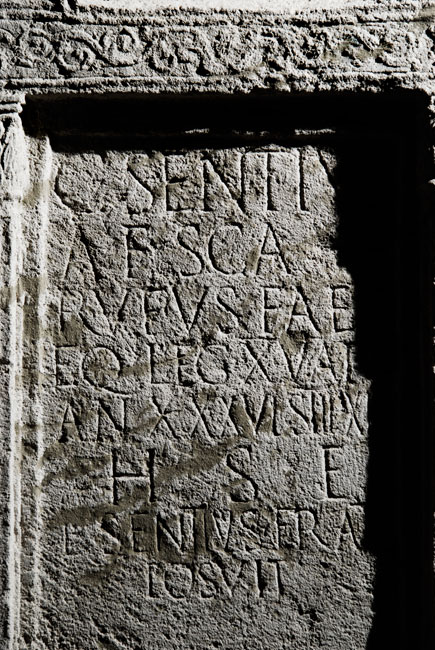 C SENTIV
A F SCA
RVFVS FAE
EQ LEG XV AP
AN XXXVI STIP X
H S E
SENTIVS FRA
POSVIT